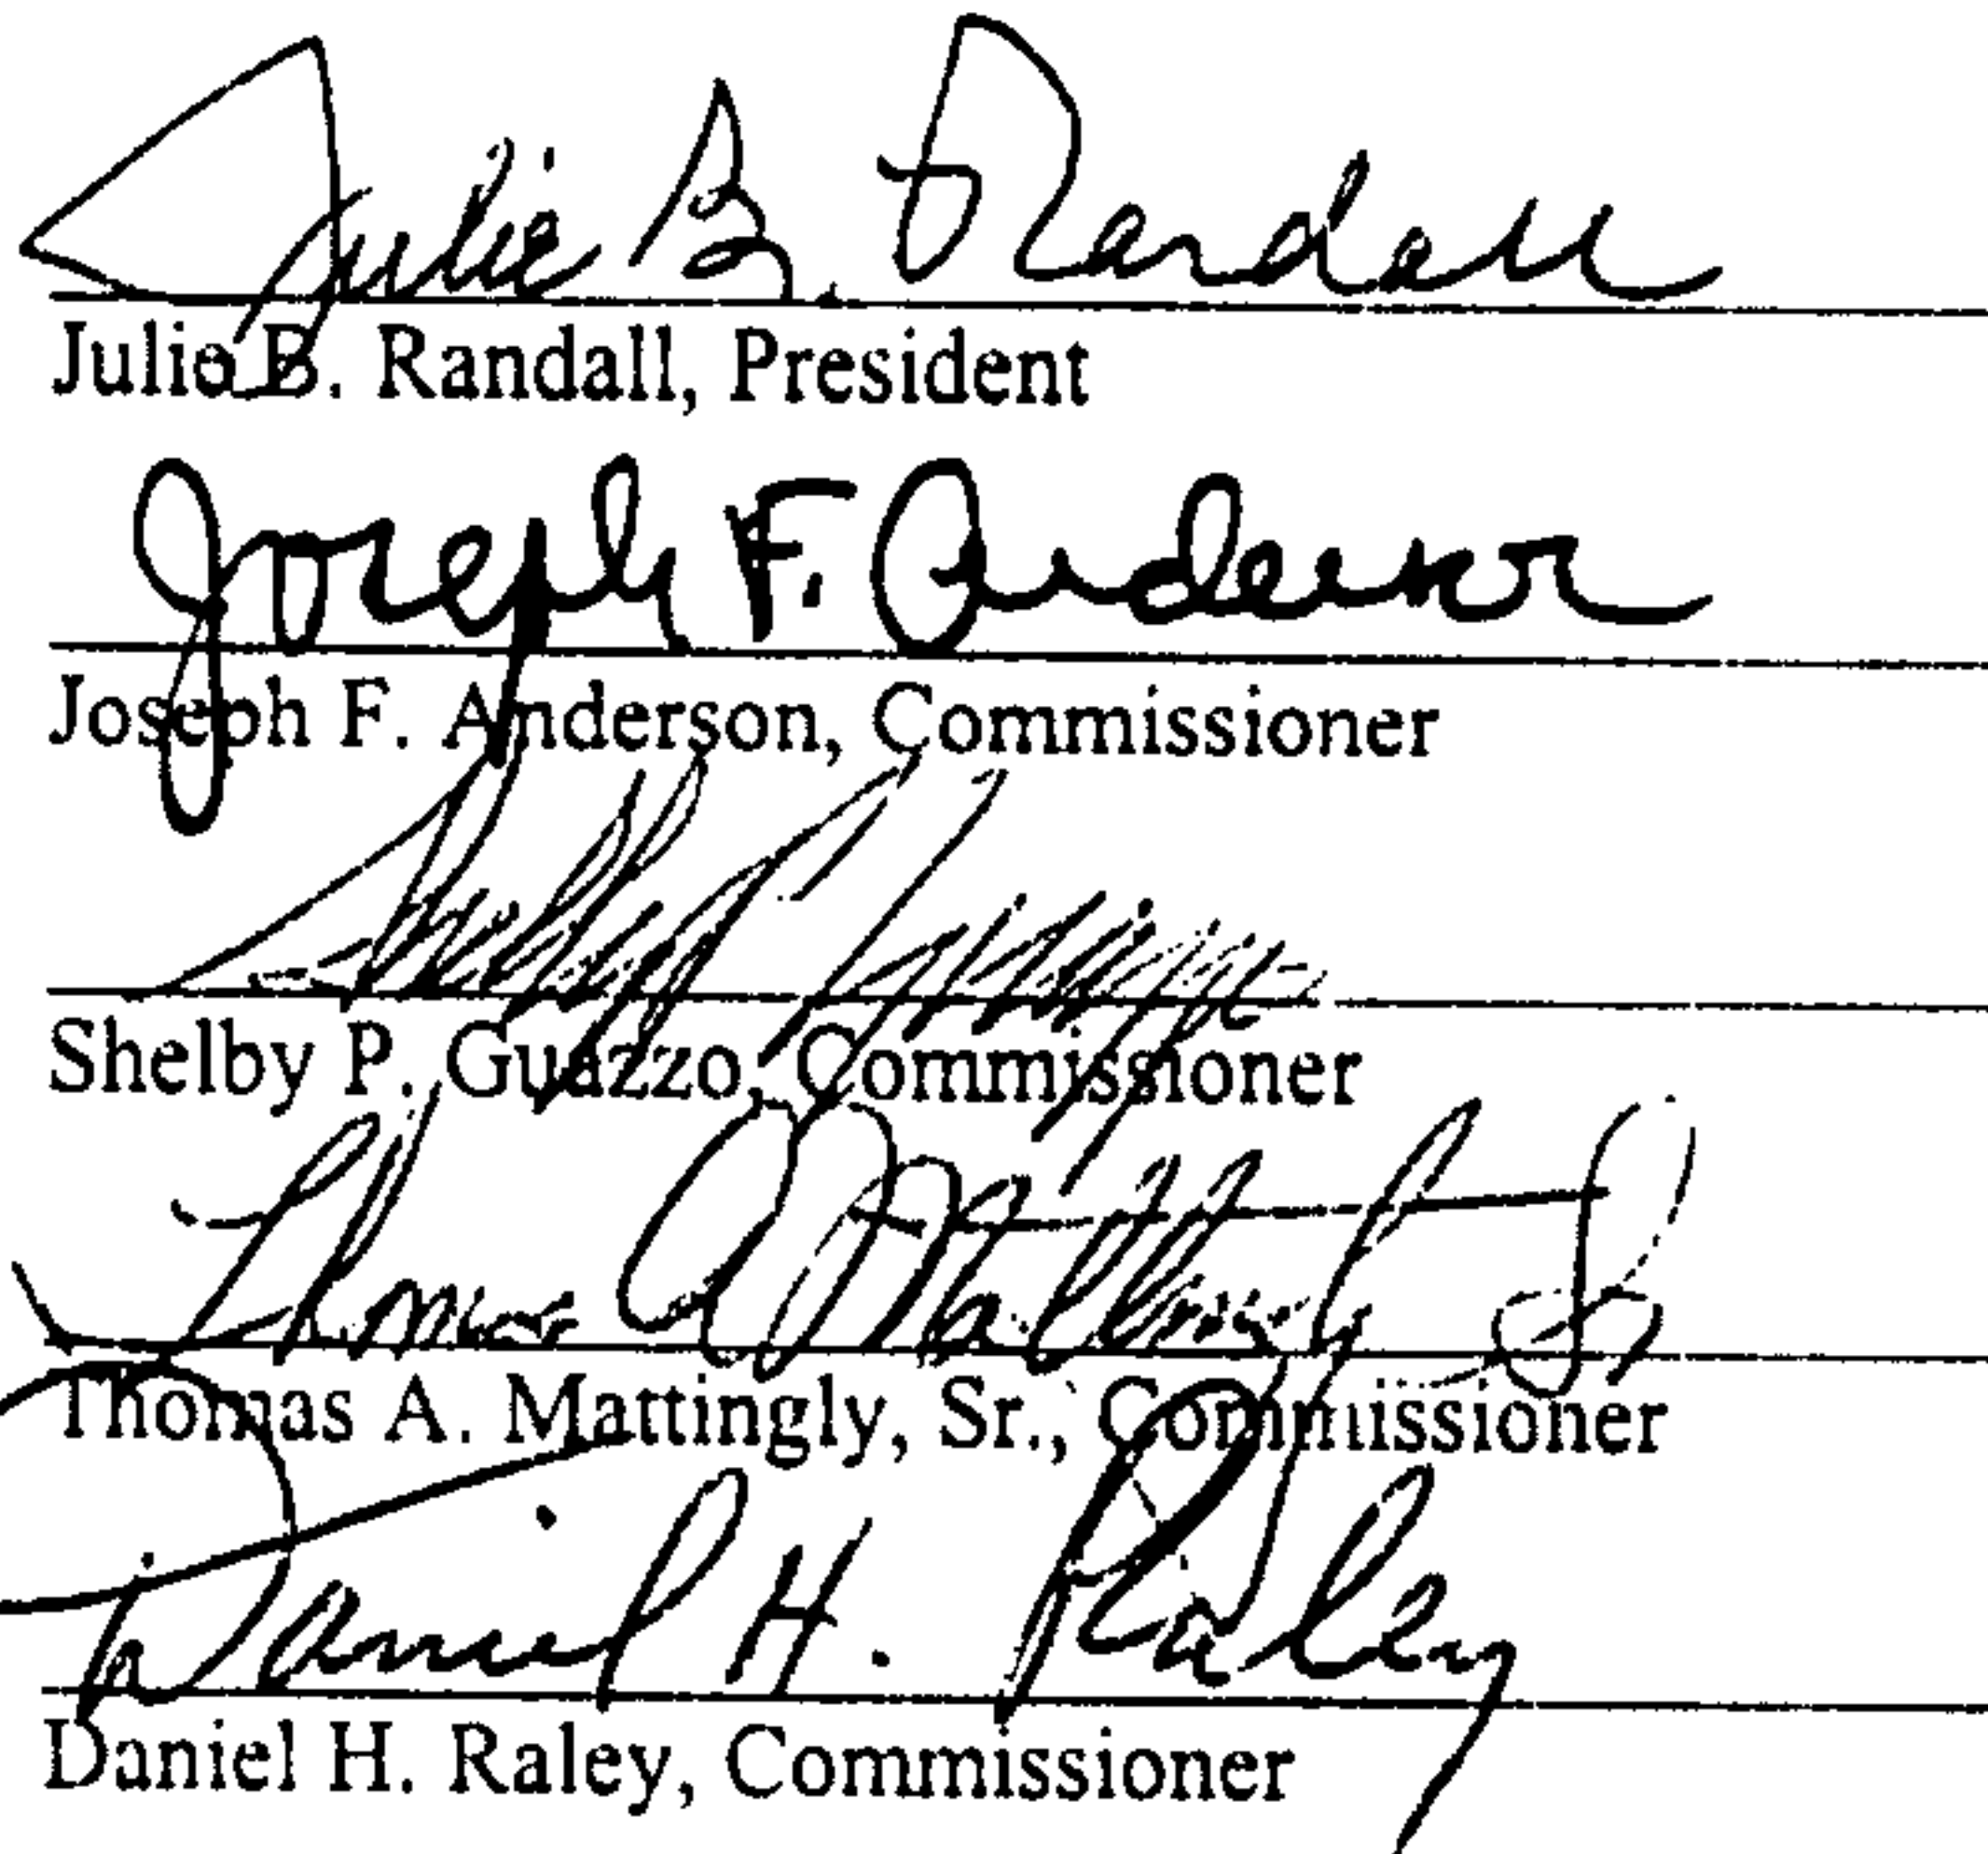 Julie B. Randall
Julie B. Randall, President
Joseph F. Anderson
Joseph F. Anderson, Commissioner
Shelby P. Guazzo, Commissioner
Thomas A. Mattingly Sr
Thomas A. Mattingly, Sr., Commissioner
Daniel H. Raley
Daniel H. Raley, Commissioner